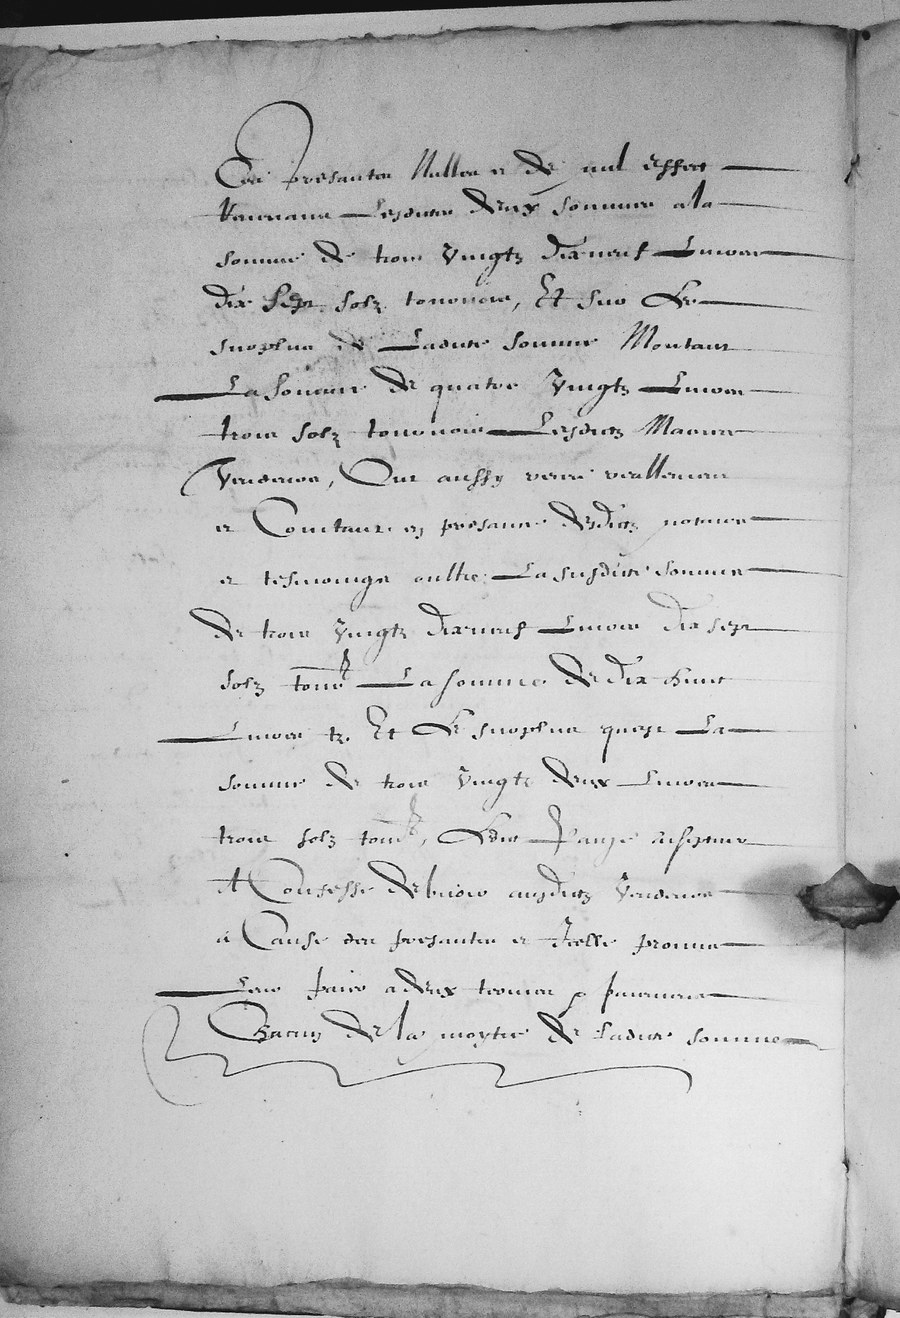 Ces presantes Nulles et de nul effect
Revenans Lesdites deux sommes a la
somme de trois Vingtz dix neuf Livres
dix sept solz tournois, Et sur Le
surplus de Ladite somme Montant
La somme de quatre Vingtz Livres
trois solz tournois Lesditz Mariez
Vendeurs, Ont aussy receu reallement
et Contant en presance desditz notaire
et tesmoings oultre La susdite somme
de trois Vingtz dix neuf Livres dix sept
solz tourn La somme de dix huict
Livres tz. Et Le surplus quest La
somme de trois Vingtz deux Livres
trois solz tourn, Ledit acepteur
A Confessé debvoir ausditz Vendeurs
a Cause des presantes et Icelle promis
Leur paier a deux termes p
Chacun de la moytie de Ladite somme